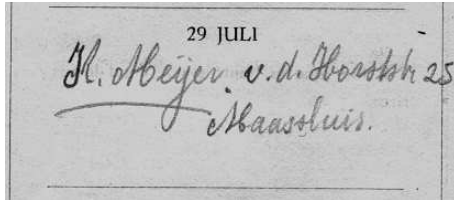 29 JULI
K. Meijer v. d. Horststr 25
Maassluis.